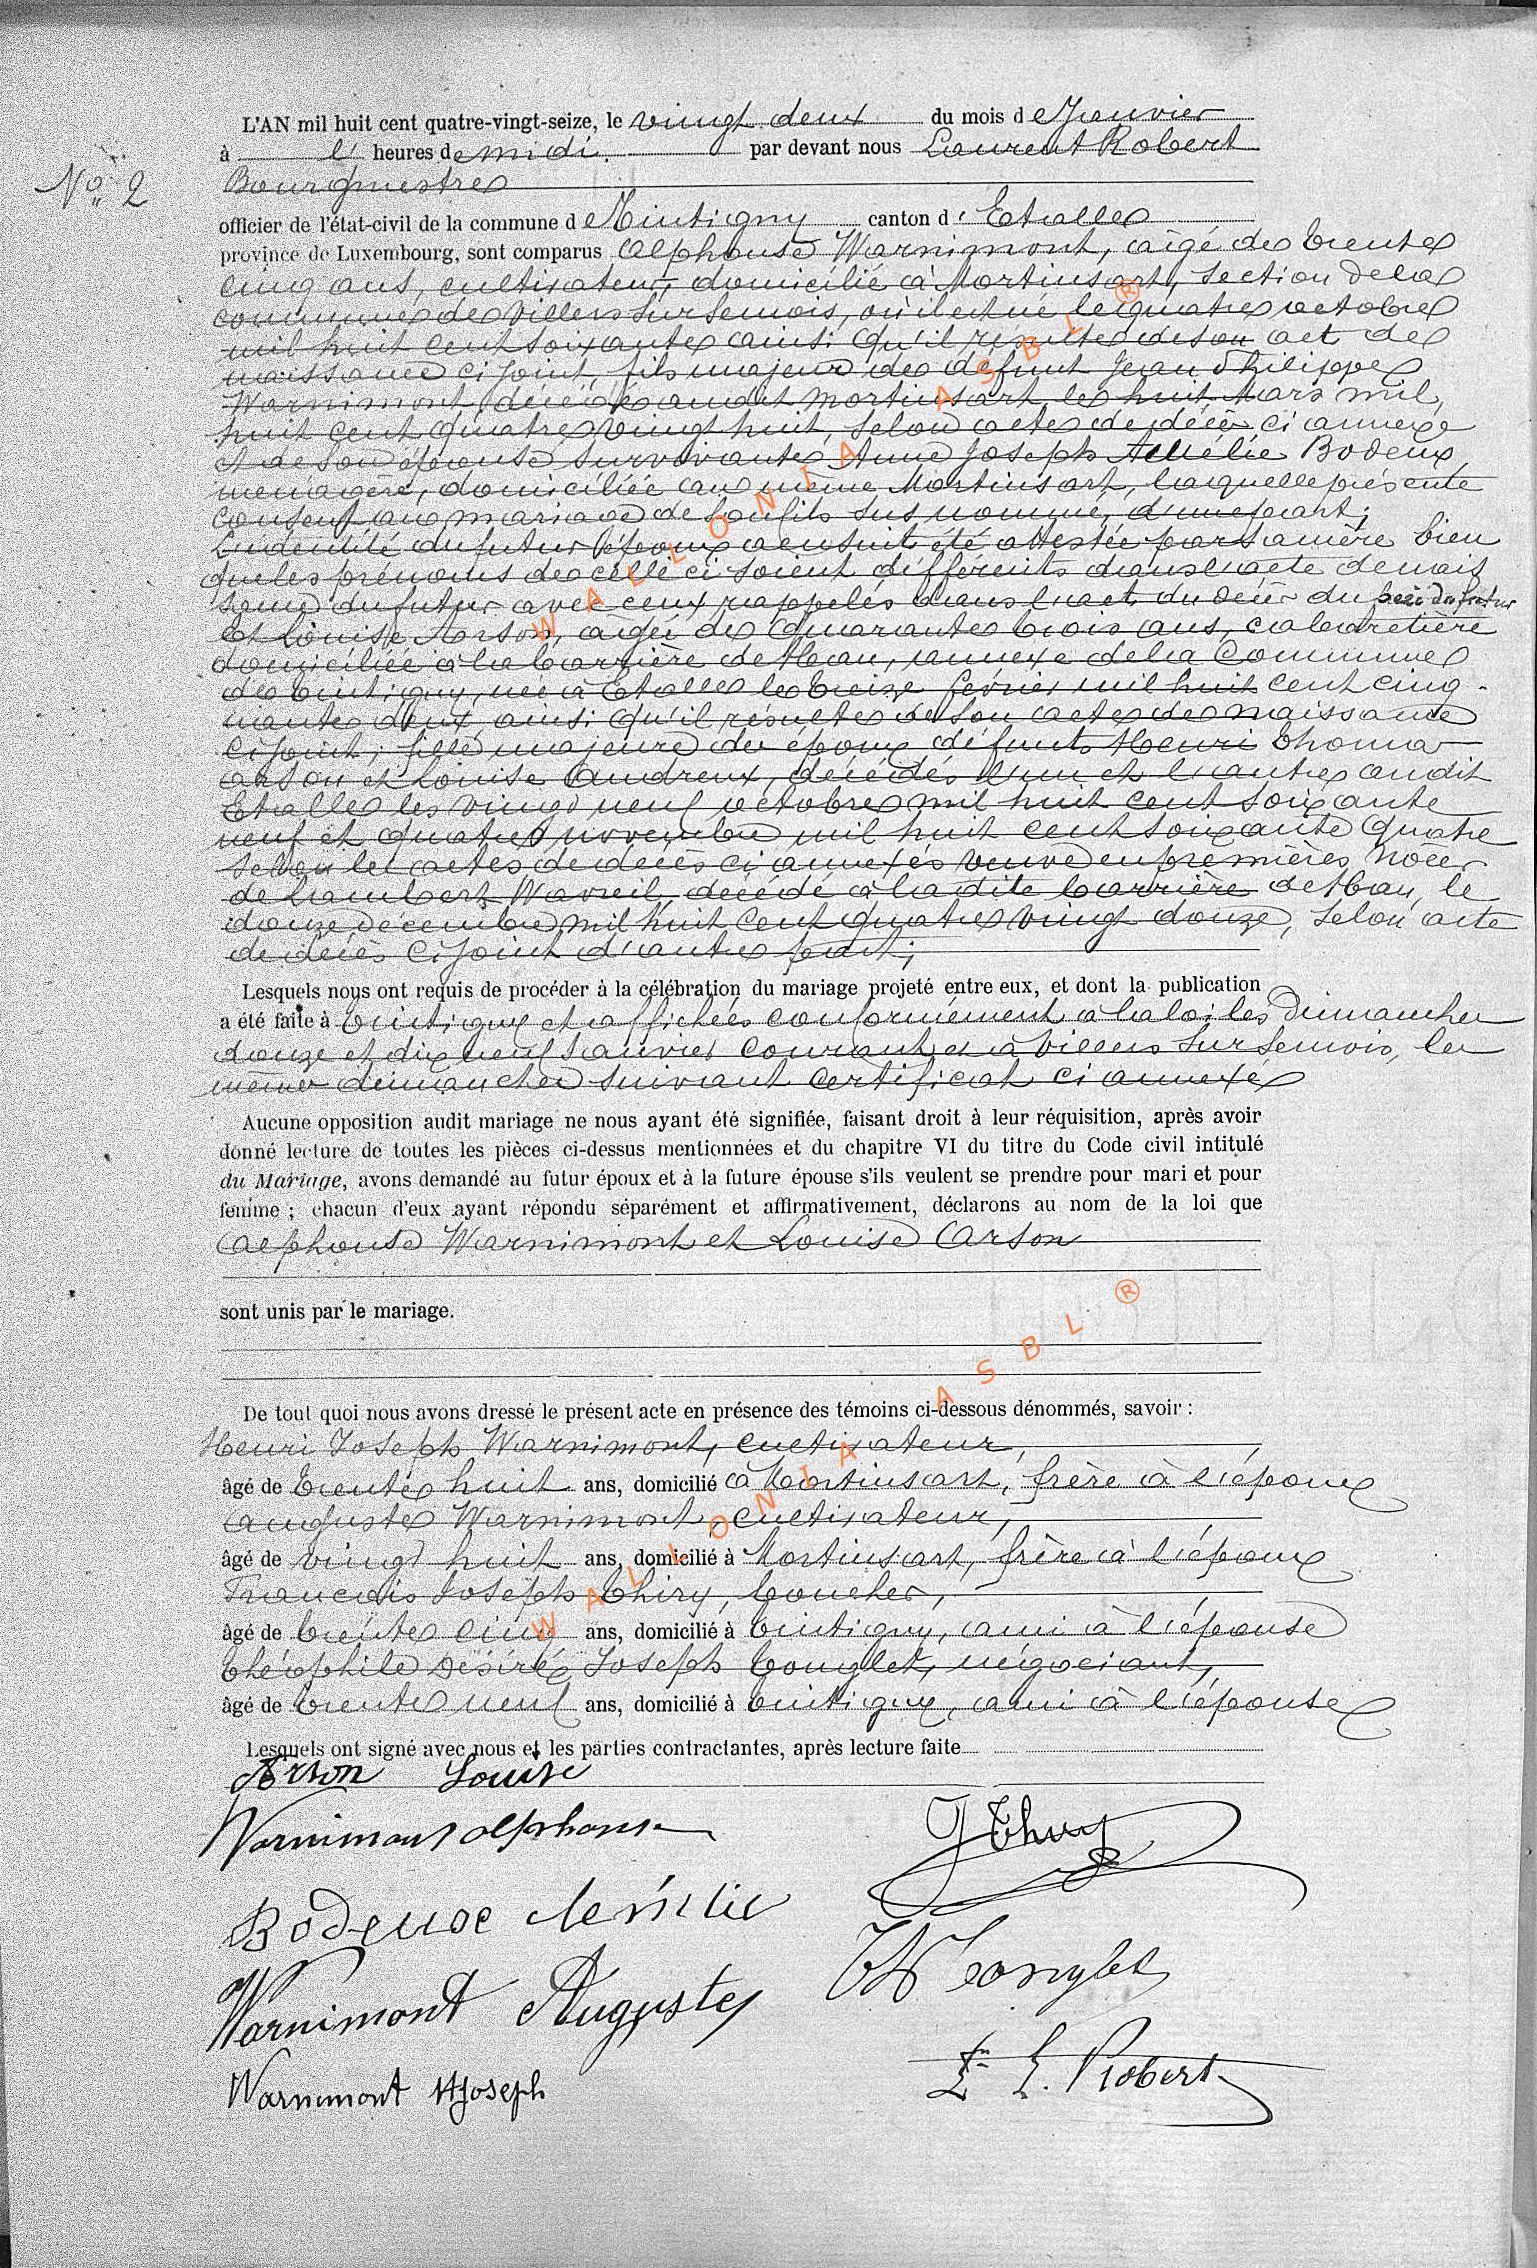 N° 2
L'AN mil huit cent quatre-vingt-seize, le vingt deux du mois de Janvier
à l' heures de midi. par devant nous Laurent Robert
Bourgmestre
officier de l'état-civil de la commune de Tintigny canton d' Etalle
province de Luxembourg, sont comparus Alphonse Warnimont, âgé de trente
cinq ans, cultivateur, domicilié à Mortinsart, section de la
commune de Villers sur Semois, où il est né le quatre octobre
mil huit cent soixante ainsi qu'il résulte de son acte de
naissance ci joint, fils majeur de défunt Jean Philippe
Warnimont, décédé audit Mortinsart le huit Mars mil
huit cent quatre vingt huit, selon acte de décès ci annexé
et de son épouse survivante Anne Joseph Amélie Bodeux,
ménagère, domiciliée au même Mortinsart, laquelle présente
consent au mariage de son fils sus nommé, d'une part;
L'identité du futur époux a ensuite été attestée par sa mère bien
que les prénoms de celle ci soient différents dans l'acte de nais
sance du futur avec ceux rappelés dans l'acte du décès du père du futur
Et Louise Arson, âgée de quarante trois ans, cabaretière
domiciliée à la barrière de Han, annexe de la Commune
de Tintigny, née à Etalle le treize février mil huit cent cinq-
uante deux, ainsi qu'il résulte de son acte de naissance
ci joint; fille majeure des époux défunts Henri Thomas
Arson et Louise Andreux, décédés l'un et l'autre audit
Etalle les vingt neuf octobre mil huit cent soixante
neuf et quatre novembre mil huit cent soixante quatre
selon les actes de décès ci annexés veuve en premières noces
de Lambert Wavreil, décédé à la dite barrière de Han, le
douze décembre mil huit cent quatre vingt douze, selon acte
de décès ci joint d'autre part;
Lesquels nous ont requis de procéder à la célébration du mariage projeté entre eux, et dont la publication
a été faite à Tintigny et affichées conformément à la loi les Dimanches
douze et dix neuf Janvier courant et à Villers sur Semois, les
mêmes dimanches suivant certificat ci annexé
Aucune opposition audit mariage ne nous ayant été signifiée, faisant droit à leur réquisition, après avoir
donné lecture de toutes les pièces ci-dessus mentionnées et du chapitre VI du titre du Code civil intitulé
du Mariage, avons demandé au futur époux et à la future épouse s'ils veulent se prendre pour mari et pour
femme ; chacun d'eux ayant répondu séparément et affirmativement, déclarons au nom de la loi que
Alphonse Warnimont et Louise Arson
sont unis par le mariage.
De tout quoi nous avons dressé le présent acte en présence des témoins ci-dessous dénommés, savoir :
Henri Joseph Warnimont, cultivateur,
âgé de trente huit ans, domicilié à Mortinsart, frère à l'époux
Auguste Warnimont, cultivateur,
âgé de vingt huit ans, domicilié à Mortinsart, frère à l'époux
François Joseph Thiry, boucher,
âgé de trente cinq ans, domicilié à Tintigny, ami à l'épouse
Théophile Désiré Joseph Conglet, négociant,
âgé de trente neuf ans, domicilié à Tintigny, ami à l'épouse
Lesquels ont signé avec nous et les parties contractantes, après lecture faite
Arson Louise
Warnimont alphonse
J Thiry
Bodeux
Warnimont Auguste
Warnimont HJoseph
L. Robert
WALLONIA ASBL ®
WALLONIA ASBL ®